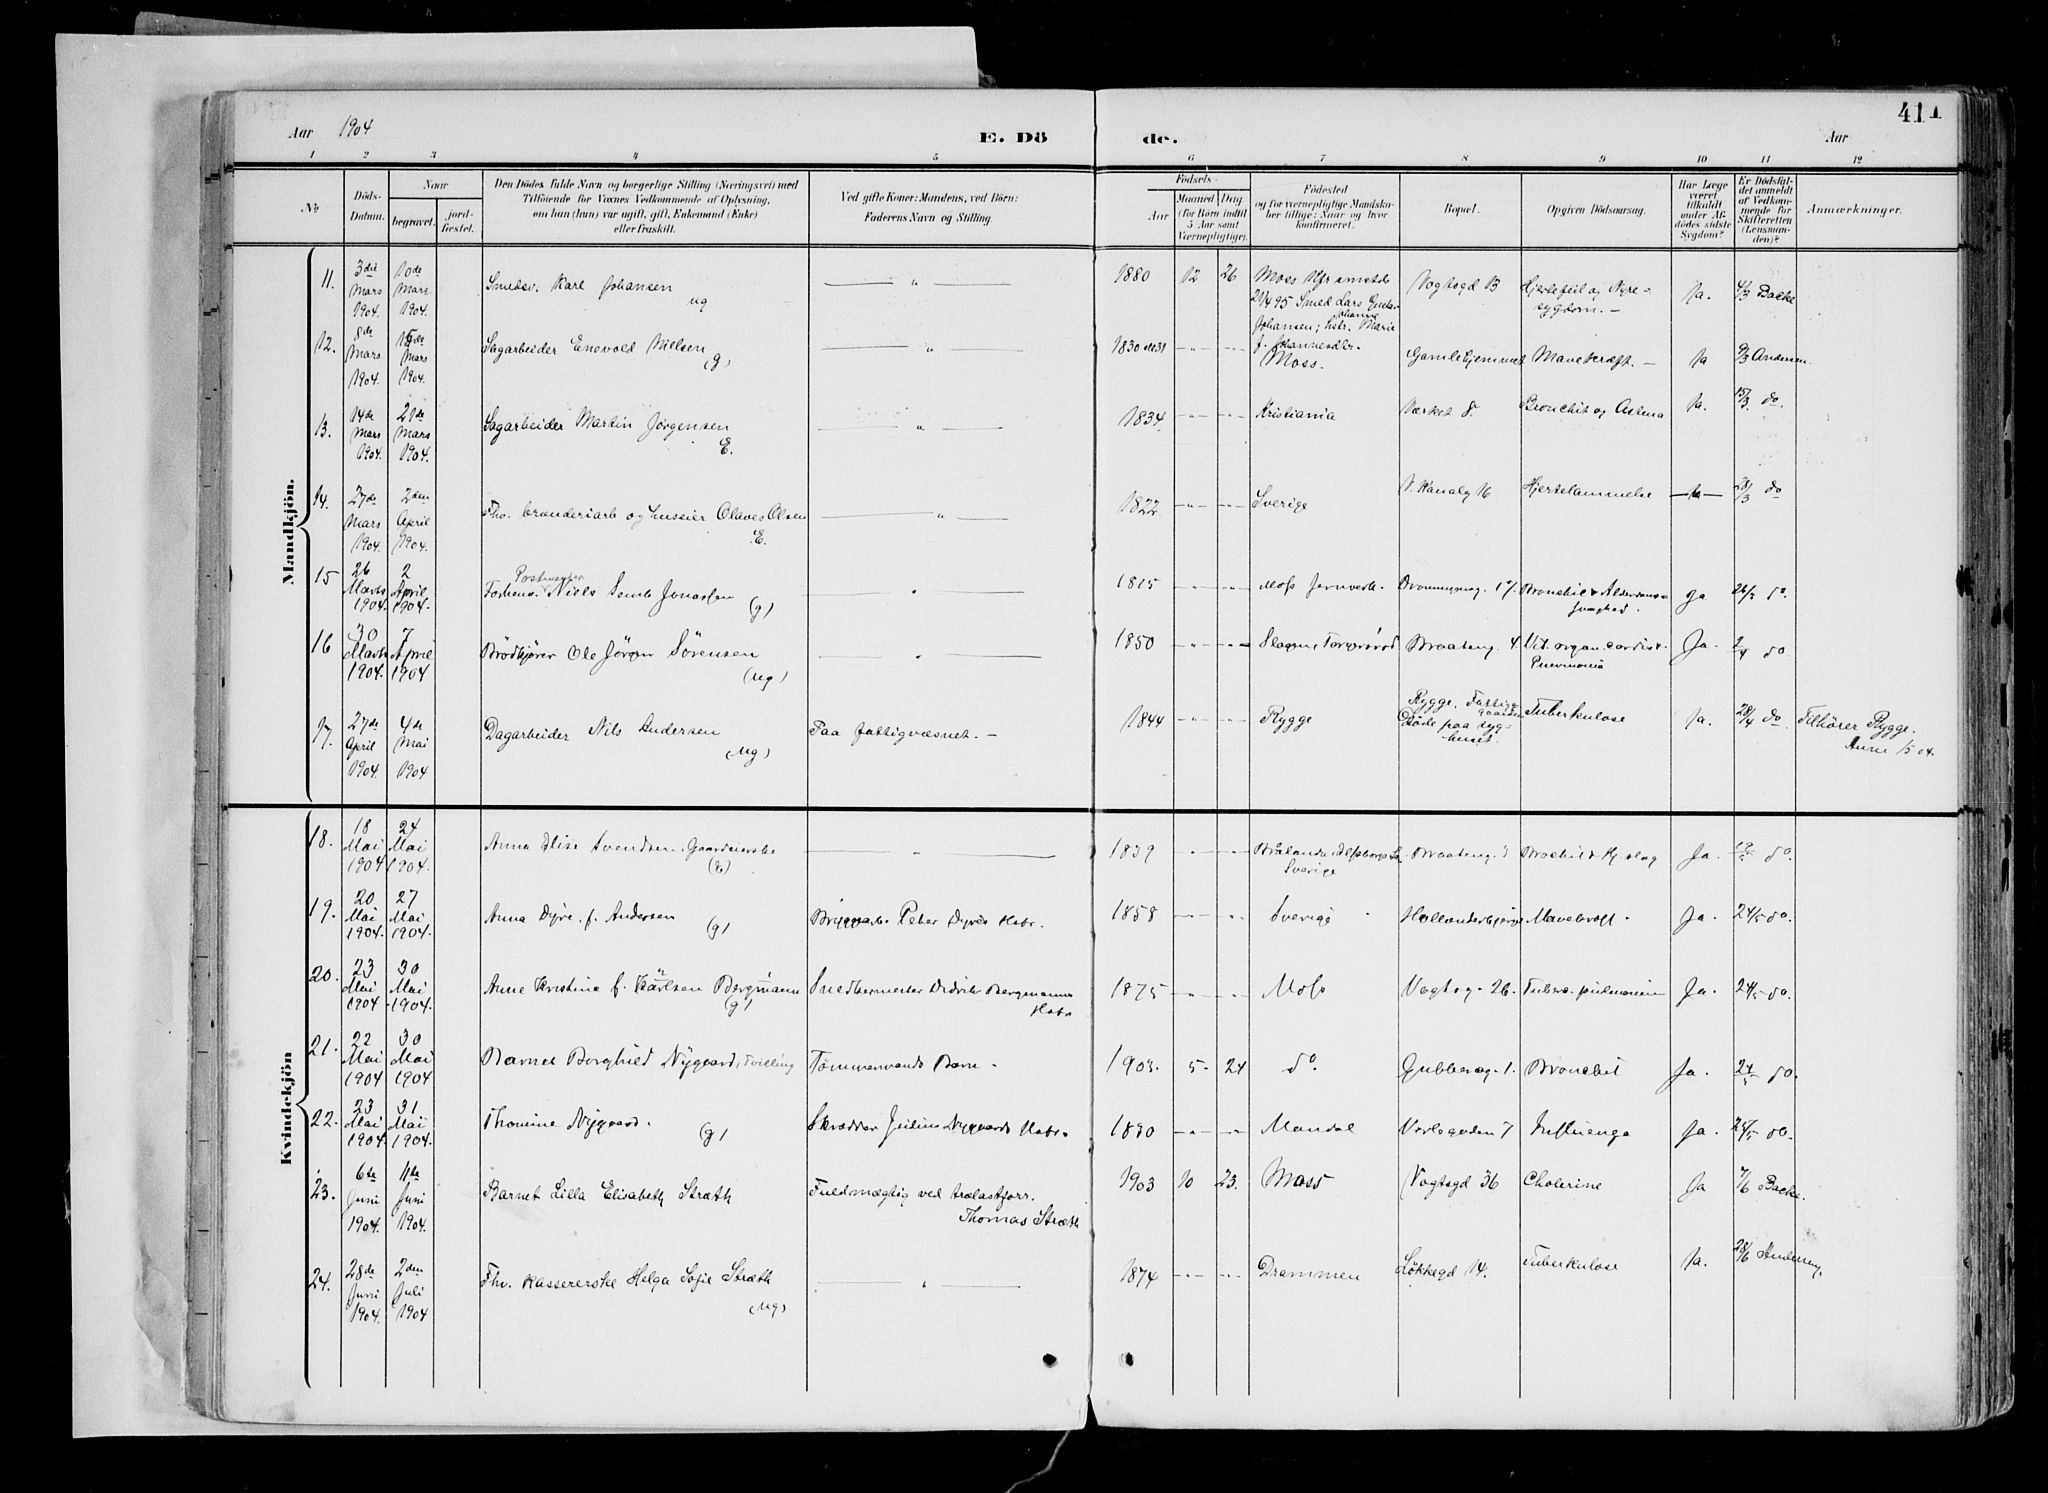 411
Aar 1904
E. Dö
de.
Aar
1 2 3 4 5 6 7 8 9 10 11 12
No
Döds-Datum.
Naar
begravet.
jord-fæstet.
Den Dödes fulde Navn og borgerlige Stilling (Næringsvei) med
Tilföiende for Voxnes Vedkommende af Oplysning,
om han (hun) var ugift, gift, Enkemand (Enke)
eller fraskilt.
Ved gifte Koner: Mandens, ved Börn:
Faderens Navn og Stilling.
Födsels-
Aar
Maaned Dag
(for Börn indtil
5 Aar samt
Værnepligtige).
Födested
og for værnepligtige Mandska-
ber tillige: Naar og hvor
konfirmeret.
Bopæl.
Opgiven Dödsaarsag.
Har Læge
været
tilkaldt
under Af-
dödes sidste
Sygdom?
Er Dödsfal-
det anmeldt
af Vedkom-
mende for
Skifteretten
(Lensman-
den)?
Anmærkninger.
Mandkjön.
11. 3die Mars 1904. 10de Mars 1904. Smedsv. Karl Johansen ug — " — 1880 12 26 Moss
21/4 95 Smed Lars
Johansen; hstr. Johanne Marie
Vogtsgd 13 Hjertefeil og Nyre-
sygdom. — Ja. 4/3 Backe
12. 8de Mars 1904. 15de Mars 1904. Sagarbeider Enevold Nielsen (g) — " — 1830 Moss. Gamlehjemmet Mavekræft. — Ja 9/3 Andersen.
13. 14de Mars 1904. 21de Mars 1904. Sagarbeider Martin Jørgensen E. — " — 1834. Kristiania Værket 8. Bronchit og Astma Ja. 15/3 do.
14. 27de Mars 1904. 2den April 1904. Fhv. brænderiarb og huseier Olaves Olsen E. — " — 1822. Sverige V. Kanalg 16 Hjertelammelse 28/3 do
15 26 Marts 1904. 2 April 1904. Forhenv. Postmester Niels Semb Jonassen (g) — " — 1815 Moss Jernverk. Dronningensg. Bronchit & Alderdoms-
svaghed. Ja 26/3 do.
16 30 Marts 1904. 7 April 1904 Brödkjörer Ole Jörgen Sörensen (ug) — " — 1850 Braateng. 4. Vit. organ. cordis &
Pneumonia Ja. 2/4 do
17. 27de April 1904. 4de Mai 1904 Dagarbeider Nils Andersen (ug) Paa fattigvæsnet. — 1844 Rygge Rygge. Fattig-
gaarden
Døde paa syg-
huset. Tuberkulose Ja. 28/4 do Tilhører Rygge.
Kvindekjön
18. 18 Mai 1904 24 Mai 1904. Anna Elise Svendsen, Gaardeierske (E) — " — 1839
Sverige Braateng. Ja. do.
19. 20 Mai 1904. 27 Mai 1904. Anna Dyre f. Andersen (g) Bryggearb. Peter Dyres Hstr. 1858 Sverige Mavekræft. Ja. 24/5 do.
20. 23 Mai 1904 30 Mai 1904. Anne Kristine f. Karlsen Bergmann (g) Snedkermester Didrik Bergmanns
Hstr 1875 Moss Vogtsg. 26. Tuberc. pulmonum Ja. 24/5 do.
21. 22 Mai 1904 30 Mai 1904 Barnet Borghild Nygaard, Tvilling Tömmermands Barn. 1903. 5. 24 do Gubberog. 1. Bronchit Ja. 24/5 do.
22. 23 Mai 1904. 31 Mai 1904. Thomine Nygaard. (g) Skrædder Julius Nygaards Hstr. Mandal Influenza Ja. 24/5 do.
23. 6te Juni 1904. 11te Juni 1904. Barnet Lilla Elisabeth Stræth Fuldmægtig ved trælastforr.
Thomas Stræth 1903 10 23. Moss Vogtsgd 36 Cholerine Ja 7/6 Backe.
24. 28de Juni 1904. 2den Juli 1904 Fhv. Kassererske Helga Sofie Stræth (ug) — " — 1874 Drammen Løkkegd 14. Tuberkulose Ja. 28/6